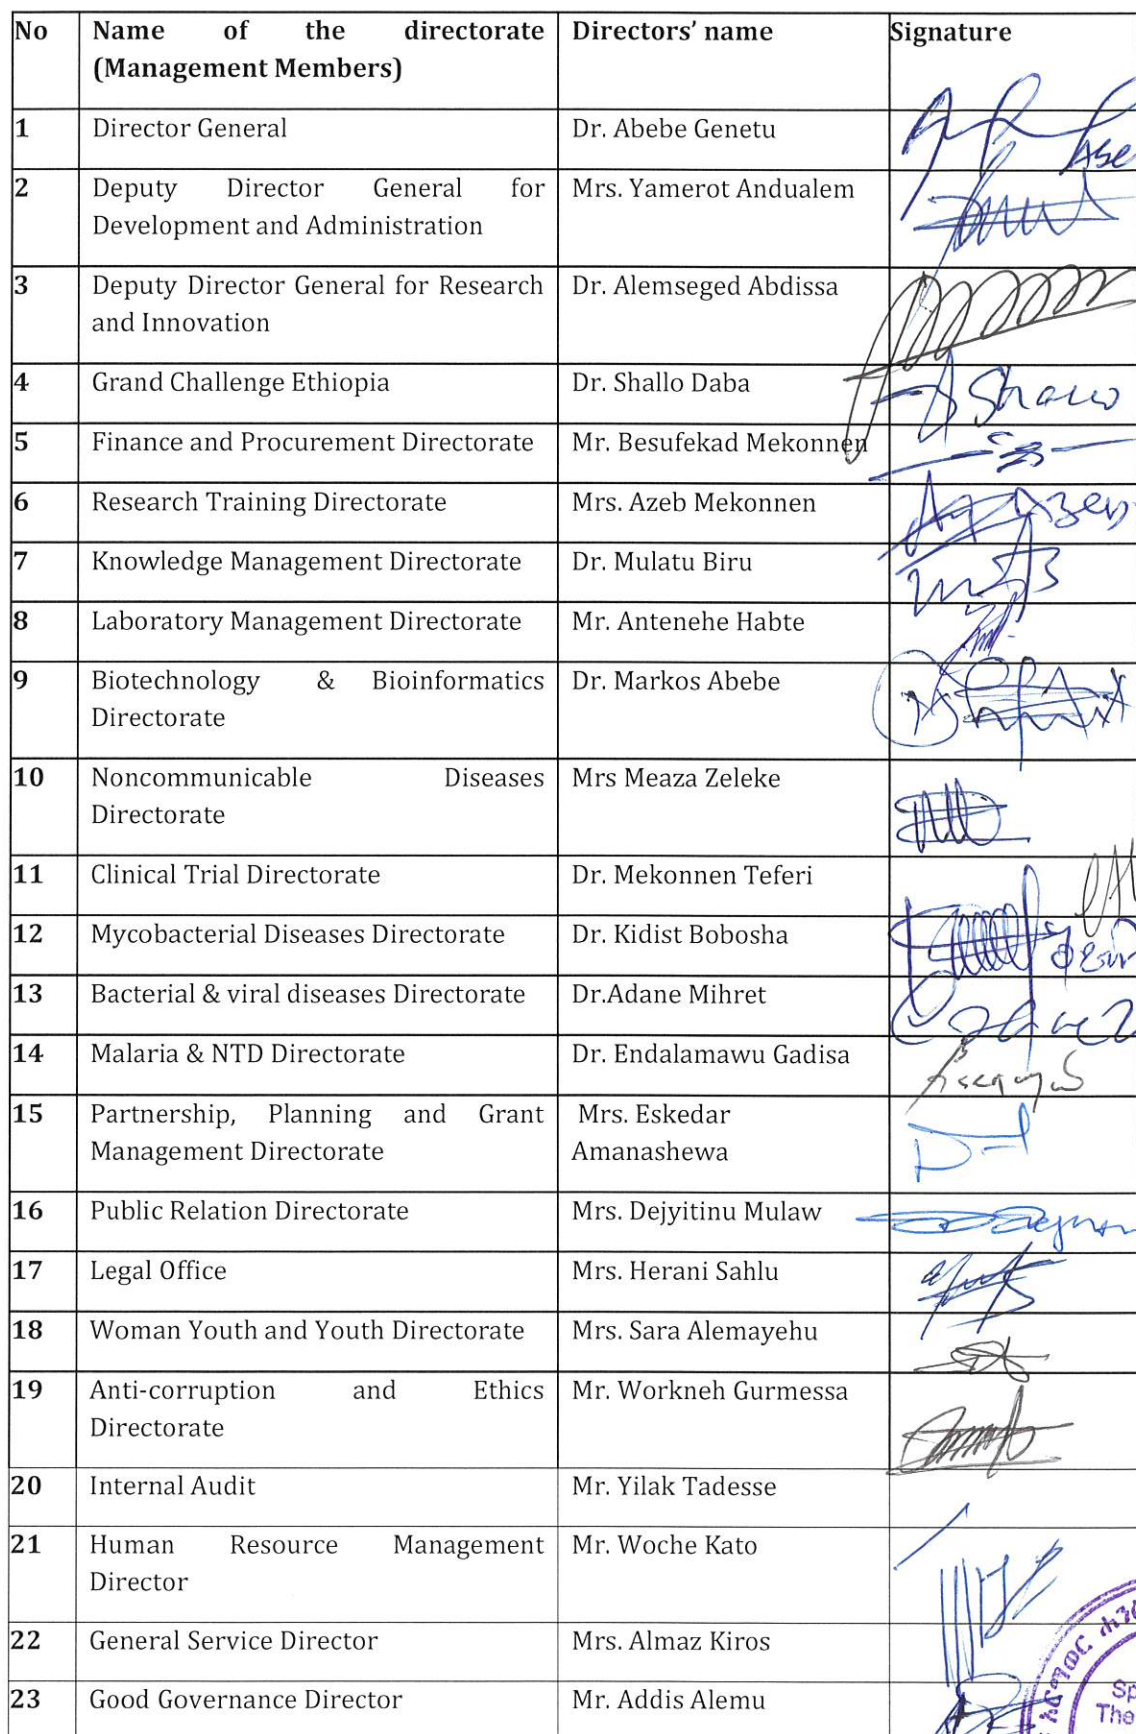 No Name of the directorate Directors' name Signature
(Management Members)
1 Director General Dr. Abebe Genetu
2 Deputy Director General for Mrs. Yamerot Andualem
Development and Administration
3 Deputy Director General for Research Dr. Alemseged Abdissa
and Innovation
4 Grand Challenge Ethiopia Dr. Shallo Daba
5 Finance and Procurement Directorate Mr. Besufekad Mekonnen
6 Research Training Directorate Mrs. Azeb Mekonnen
7 Knowledge Management Directorate Dr. Mulatu Biru
8 Laboratory Management Directorate Mr. Antenehe Habte
9 Biotechnology & Bioinformatics Dr. Markos Abebe
Directorate
10 Noncommunicable Diseases Mrs Meaza Zeleke
Directorate
11 Clinical Trial Directorate Dr. Mekonnen Teferi
12 Mycobacterial Diseases Directorate Dr. Kidist Bobosha
13 Bacterial & viral diseases Directorate Dr.Adane Mihret
14 Malaria & NTD Directorate Dr. Endalamawu Gadisa
15 Partnership, Planning and Grant Mrs. Eskedar
Management Directorate Amanashewa
16 Public Relation Directorate Mrs. Dejyitinu Mulaw
17 Legal Office Mrs. Herani Sahlu
18 Woman Youth and Youth Directorate Mrs. Sara Alemayehu
19 Anti-corruption and Ethics Mr. Workneh Gurmessa
Directorate
20 Internal Audit Mr. Yilak Tadesse
21 Human Resource Management Mr. Woche Kato
Director
22 General Service Director Mrs. Almaz Kiros
23 Good Governance Director Mr. Addis Alemu
The